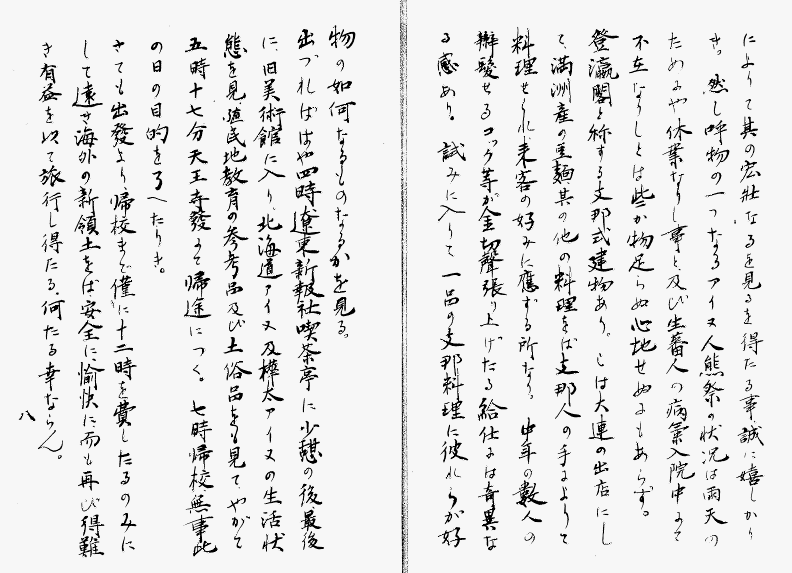 によりて其の宏壯なるを見るを得たる事誠に嬉しかり
き。然し呼物の一つなるアイヌ人熊祭の状況は雨天の
ためにや休業なりし事と及び生蕃人の病氣入院中にて
不在なりしとは些か物足らぬ心地せぬにもあらず。
登瀛閣と称する支那式建物あり。こは大連の出店にし
て満洲産の豆麺其の他の料理をば支那人の手によりて
料理せられ来客の好みに應ずる所なり。中年の數人の
辮髪せるコック等が金切聲張り上げたる給仕には奇異な
る感あり。試みに入りて一品の支那料理に彼れらが好
物の如何なるものなるかを見る。
出づればはや四時遼東新報社喫茶亭に少憩の後最後
に、旧美術館に入り、北海道アイヌ及樺太アイヌの生活状
態を見、殖民地教育の参考品及び土俗品をも見てやがて
五時十七分天王寺發にて帰途につく。七時帰校無事此
の日の目的ををへたりき。
さても出發より帰校まで僅に十二時を費したるのみに
して遠き海外の新領土をば安全に愉快に而も再び得難
き有益を以て旅行し得たる、何たる幸ならん。
八